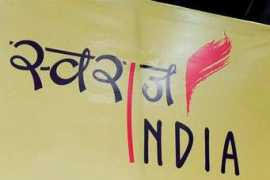 स्वराज
INDIA